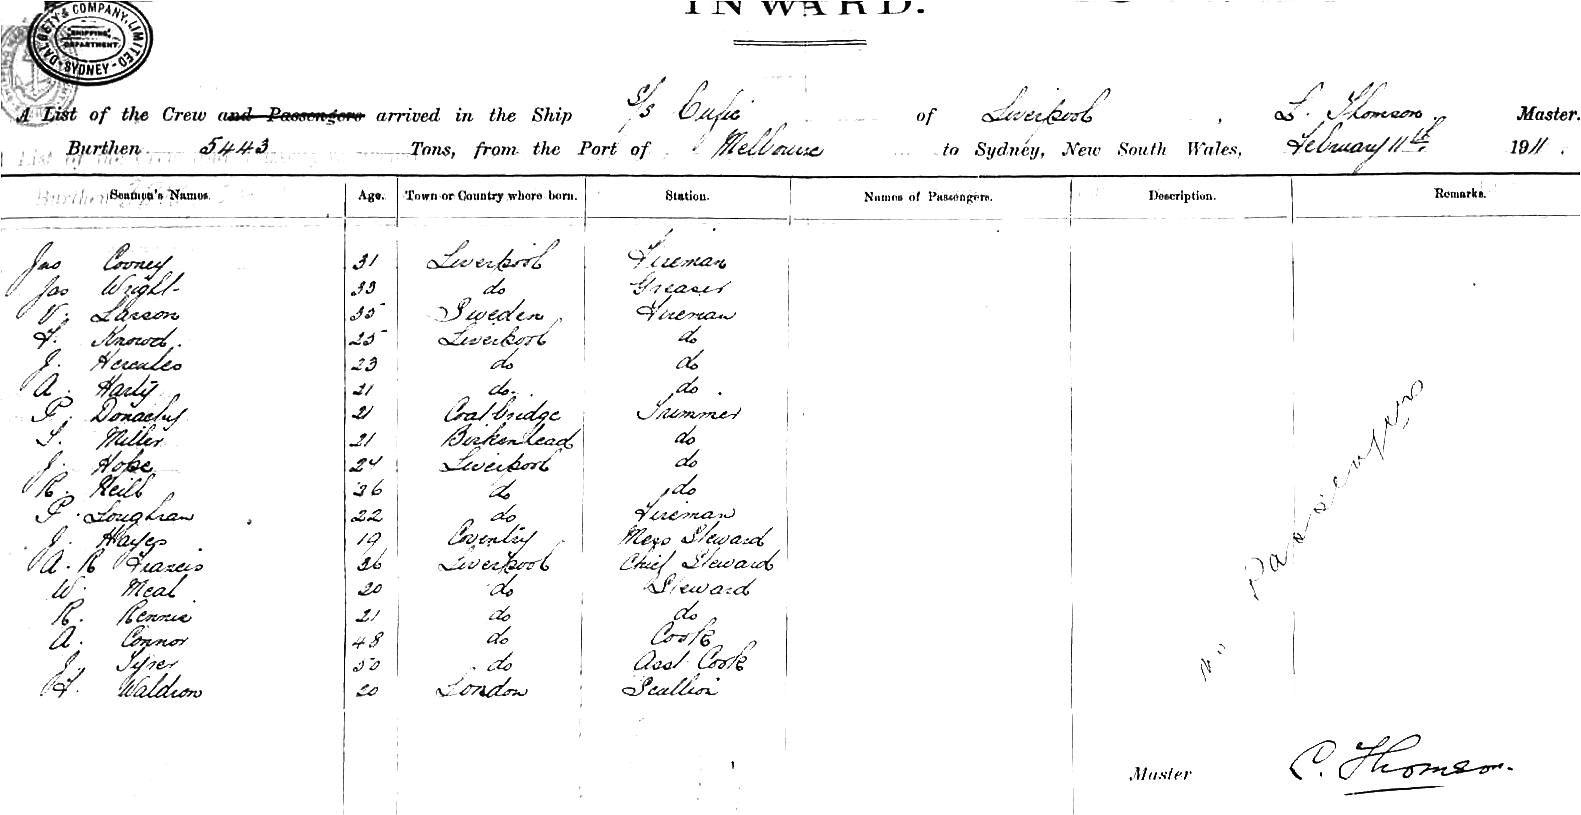 INWARD.
DALGETY & COMPANY, LIMITED
SHIPPING DEPARTMENT.
SYDNEY
A List of the Crew and Passengers arrived in the Ship S/S Cufic of Liverpool, Thomson Master.
Burthen 5443 Tons, from the Port of Melbourne to Sydney, New South Wales, February 11th 1911.
Seamen's Names. Age. Town or Country where born. Station. Names of Passengers. Description. Remarks.
Jno Cooney 31 Liverpool Fireman
Jas Wright 33 do Greaser
V. Larson 35 Sweden Fireman
25 Liverpool do
J. Hercules 23 do do
A. Harty 21 do do
P. Donachy 21 Coatbridge Trimmer
S. Miller 21 Birkenhead do
J. Hope 24 Liverpool do
R. Neill 36 do do
P. Loughran 22 do Fireman
J. Hayes 19 Coventry Mess Steward
A. R Francis 36 Liverpool Chief Steward
W. Meal 20 do Steward
R. Rennie 21 do do
A. Connor 48 do Cook
J. Tyrer 50 do Asst Cook
H. Waldron 20 London Scullion
No Passengers
Master C. Thomson.